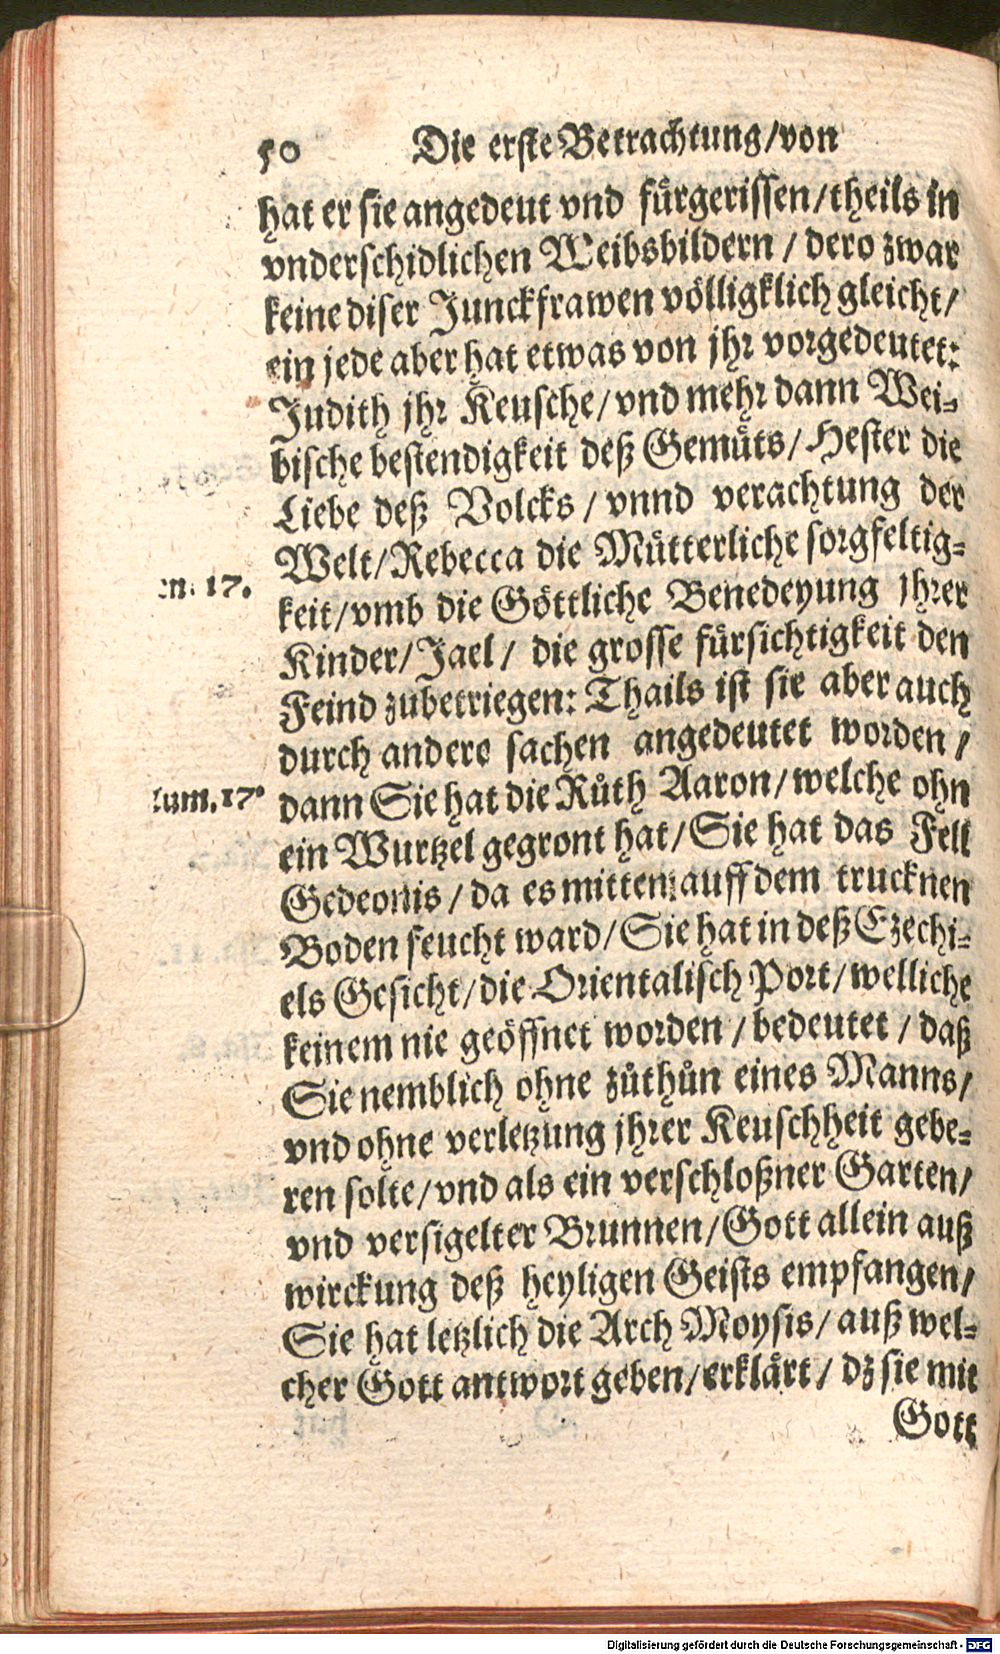 50 Die erste Betrachtung/von
hat er sie angedeut vnd fuͤrgerissen/theils in
vnderschidlichen Weibsbildern / dero zwar
keine diser Junckfrawen voͤlligklich gleicht/
ein jede aber hat etwas von jhr vorgedeutet:
Judith jhr Keusche/vnd mehr dann Wei-
bische bestendigkeit deß Gemuͤts/Hester die
Liebe deß Volcks / vnnd verachtung der
Welt/Rebecca die Muͤtterliche sorgfeltig-
en. 17.
keit/vmb die Goͤttliche Benedeyung jhrer
Kinder/Jael/ die grosse fuͤrsichtigkeit den
Feind zubetriegen: Thails ist sie aber auch
durch andere sachen angedeutet worden /
Num. 17.
dann Sie hat die Ruͦth Aaron/welche ohn
ein Wurtzel gegront hat/Sie hat das Fell
Gedeonis / da es mitten auff dem trucknen
Boden feucht ward/Sie hat in deß Ezechi-
els Gesicht/die Orientalisch Port/welliche
keinem nie geoͤffnet worden / bedeutet / daß
Sie nemblich ohne zuͦthuͦn eines Manns/
vnd ohne verletzung jhrer Keuschheit gebe-
ren solte/vnd als ein verschloßner Garten/
vnd versigelter Brunnen/Gott allein auß
wirckung deß heyligen Geists empfangen/
Sie hat letzlich die Arch Moysis/auß wel-
cher Gott antwort geben/erklaͤrt/ dz sie mit
Gott
Digitalisierung gefördert durch die Deutsche Forschungsgemeinschaft - DFG